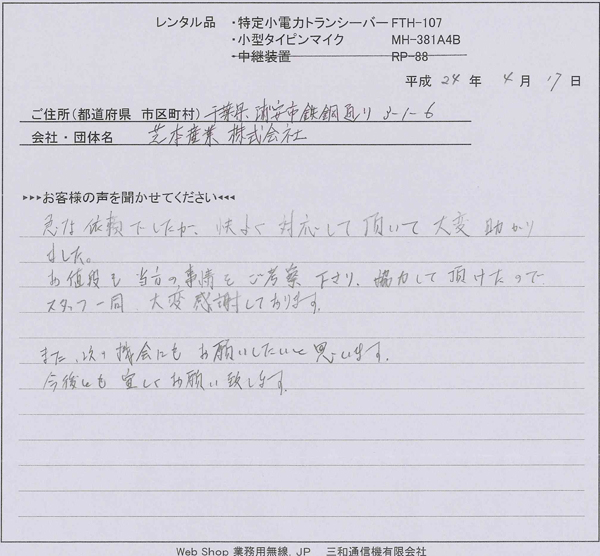 レンタル品 ・特定小電力トランシーバー FTH-107
・小型タイピンマイク MH-381A4B
・中継装置 RP-88
平成 24 年 4 月 17 日
ご住所(都道府県 市区町村) 千葉県 浦安市 鉄鋼通り 3-1-6
会社・団体名 芝本産業 株式会社
▸▸▸お客様の声を聞かせてください◂◂◂
急な依頼でしたが、快よく対応して頂いて大変助かり
ました。
お値段も当方の事情をご考察下さり、協力して頂けたので
スタッフ一同、大変感謝しております。
また、次の機会にもお願いしたいと思います。
今後とも宜しくお願い致します。
Web Shop 業務用無線.JP 三和通信機有限会社